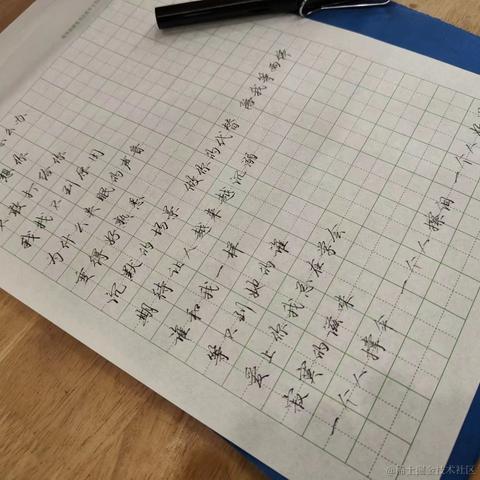 么办
想你
不敢打给你
我找不到原因
为什么失眠的声音
变得好熟悉
沉默的场景 做你的代替 陪我等雨停
期待让人越来越沉溺
谁和我一样
等不到她的谁
爱上你我总在学会
寂寞的滋味
一个人撑伞 一个人擦泪 一个人好
@稀土掘金技术社区